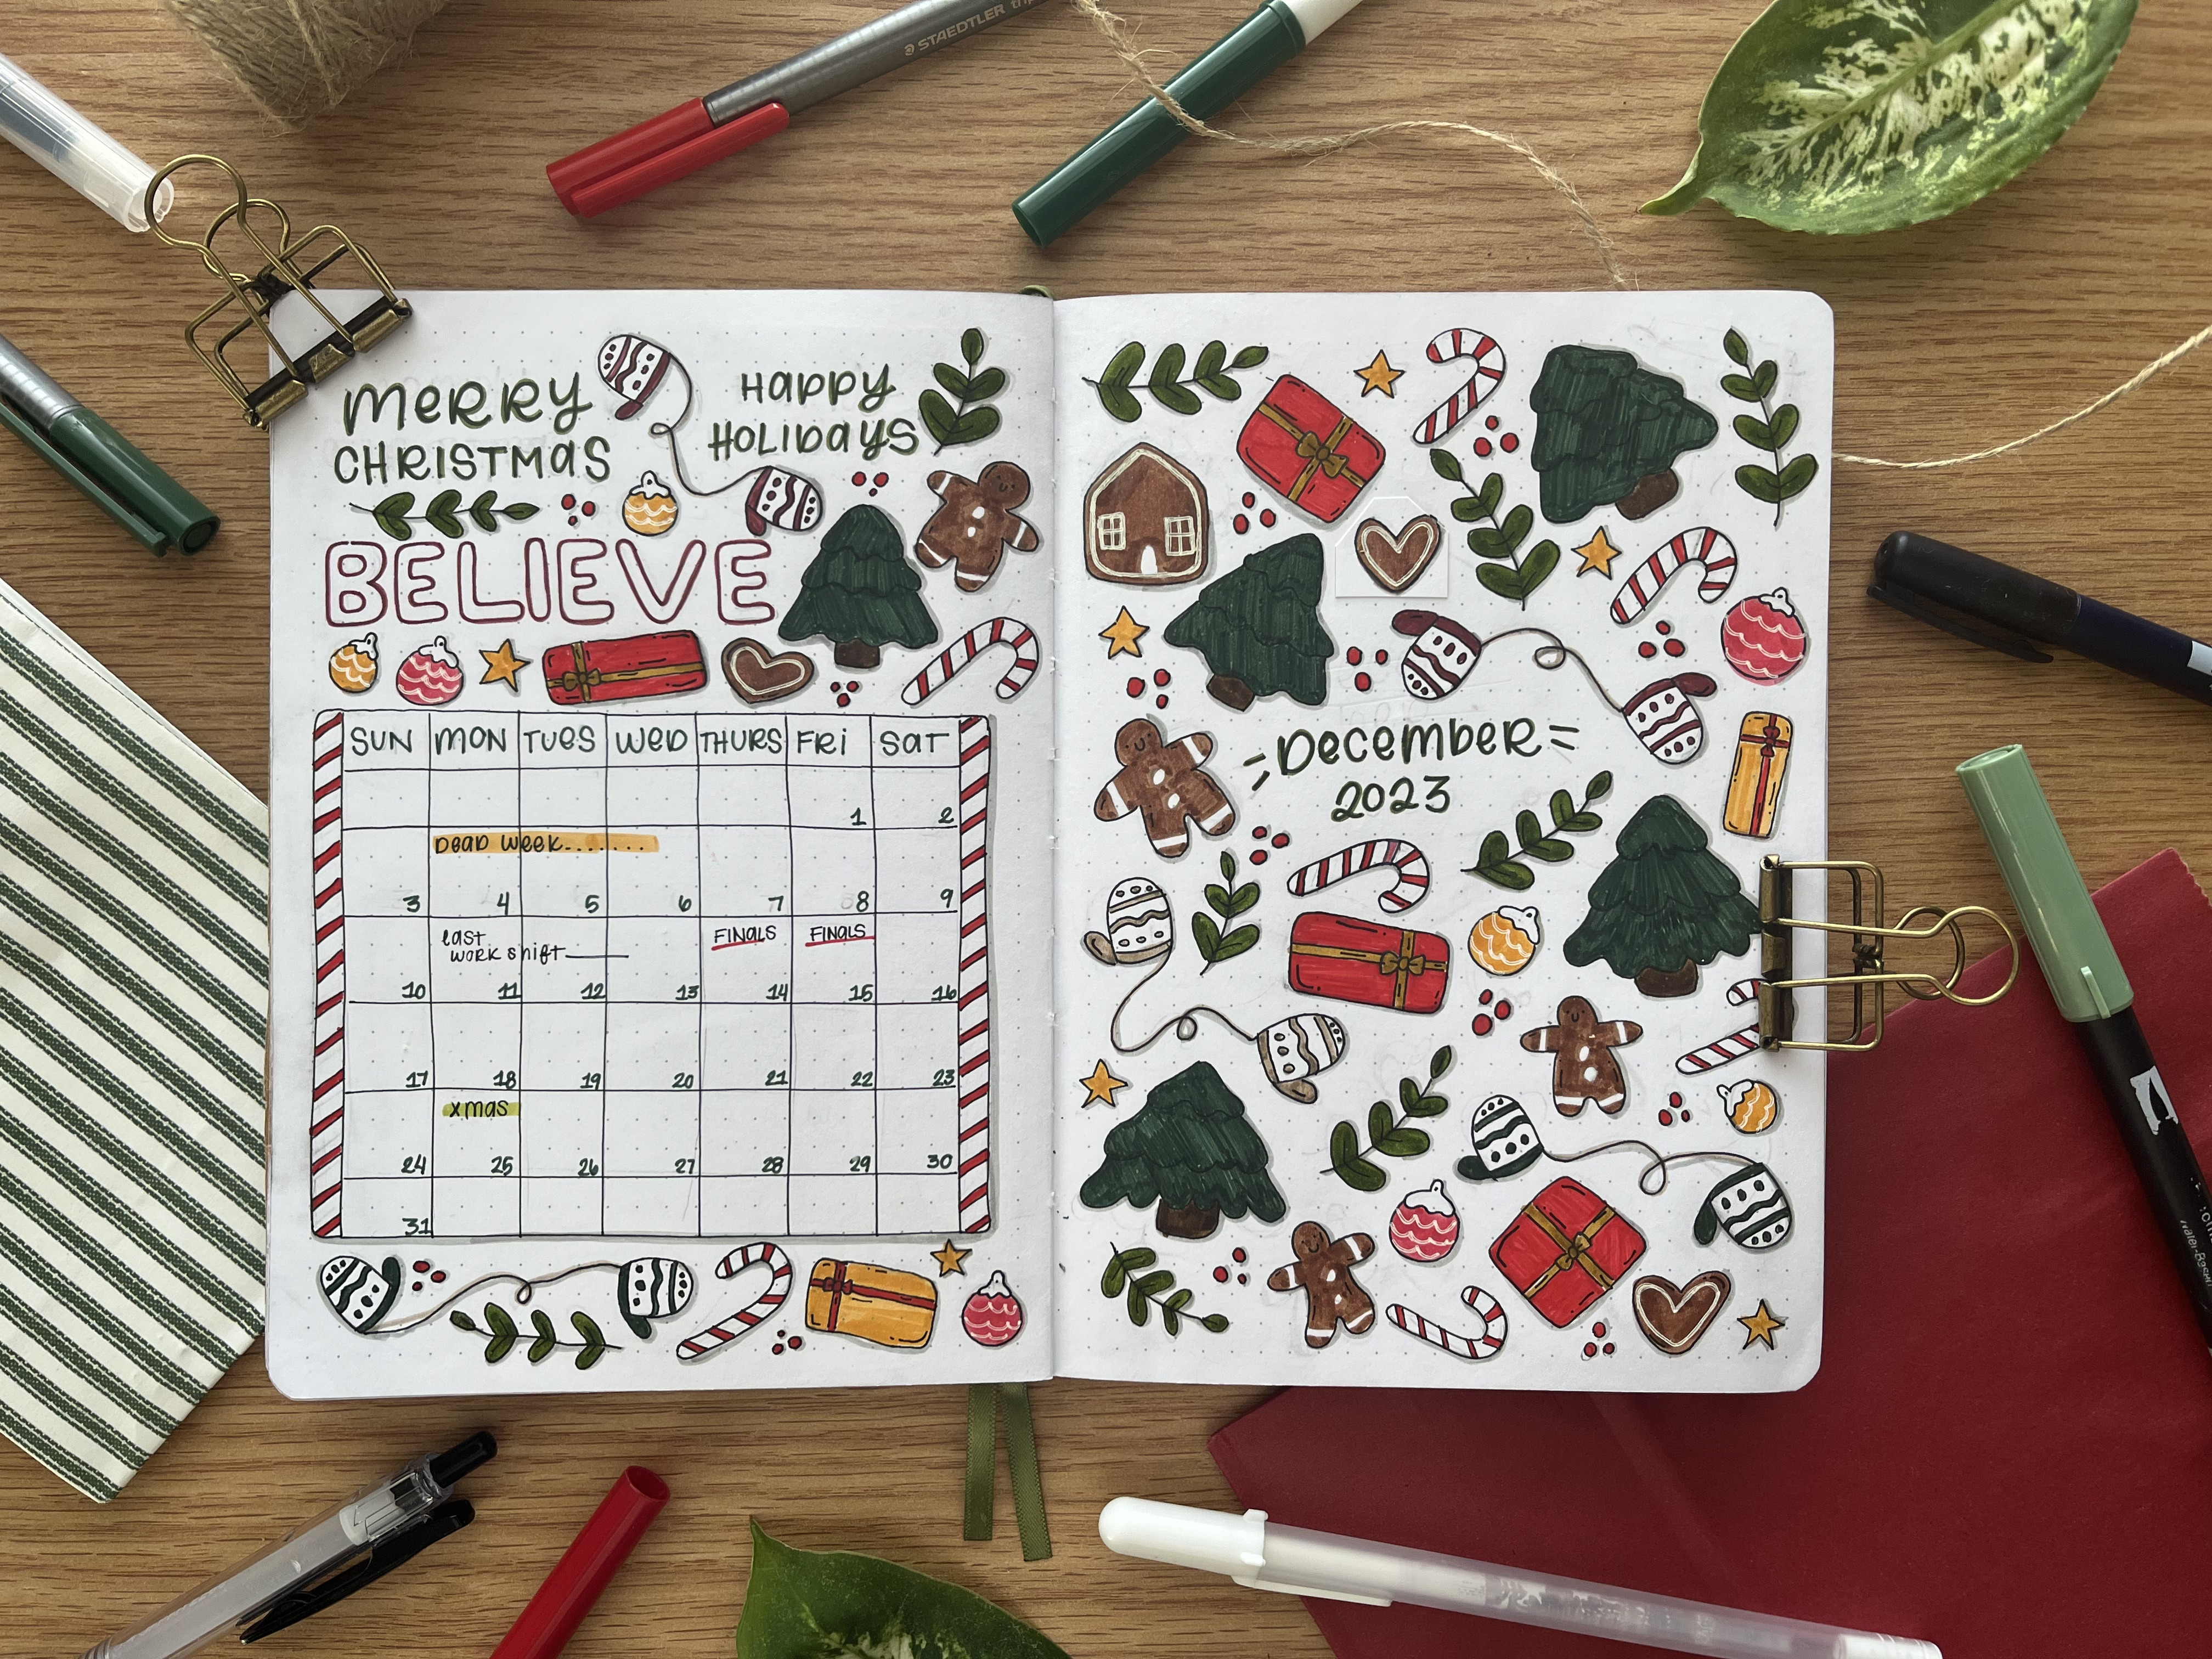 STAEDTLER
MERRY
CHRISTMAS
HAPPY
HOLIDAYS
BELIEVE
SUN MON TUES WED THURS FRI SAT
1 2
DEAD WEEK.......
3 4 5 6 7 8 9
last
WORK shift
FINALS FINALS
10 11 12 13 14 15 16
17 18 19 20 21 22 23
xmas
24 25 26 27 28 29 30
31
DECEMBER
2023